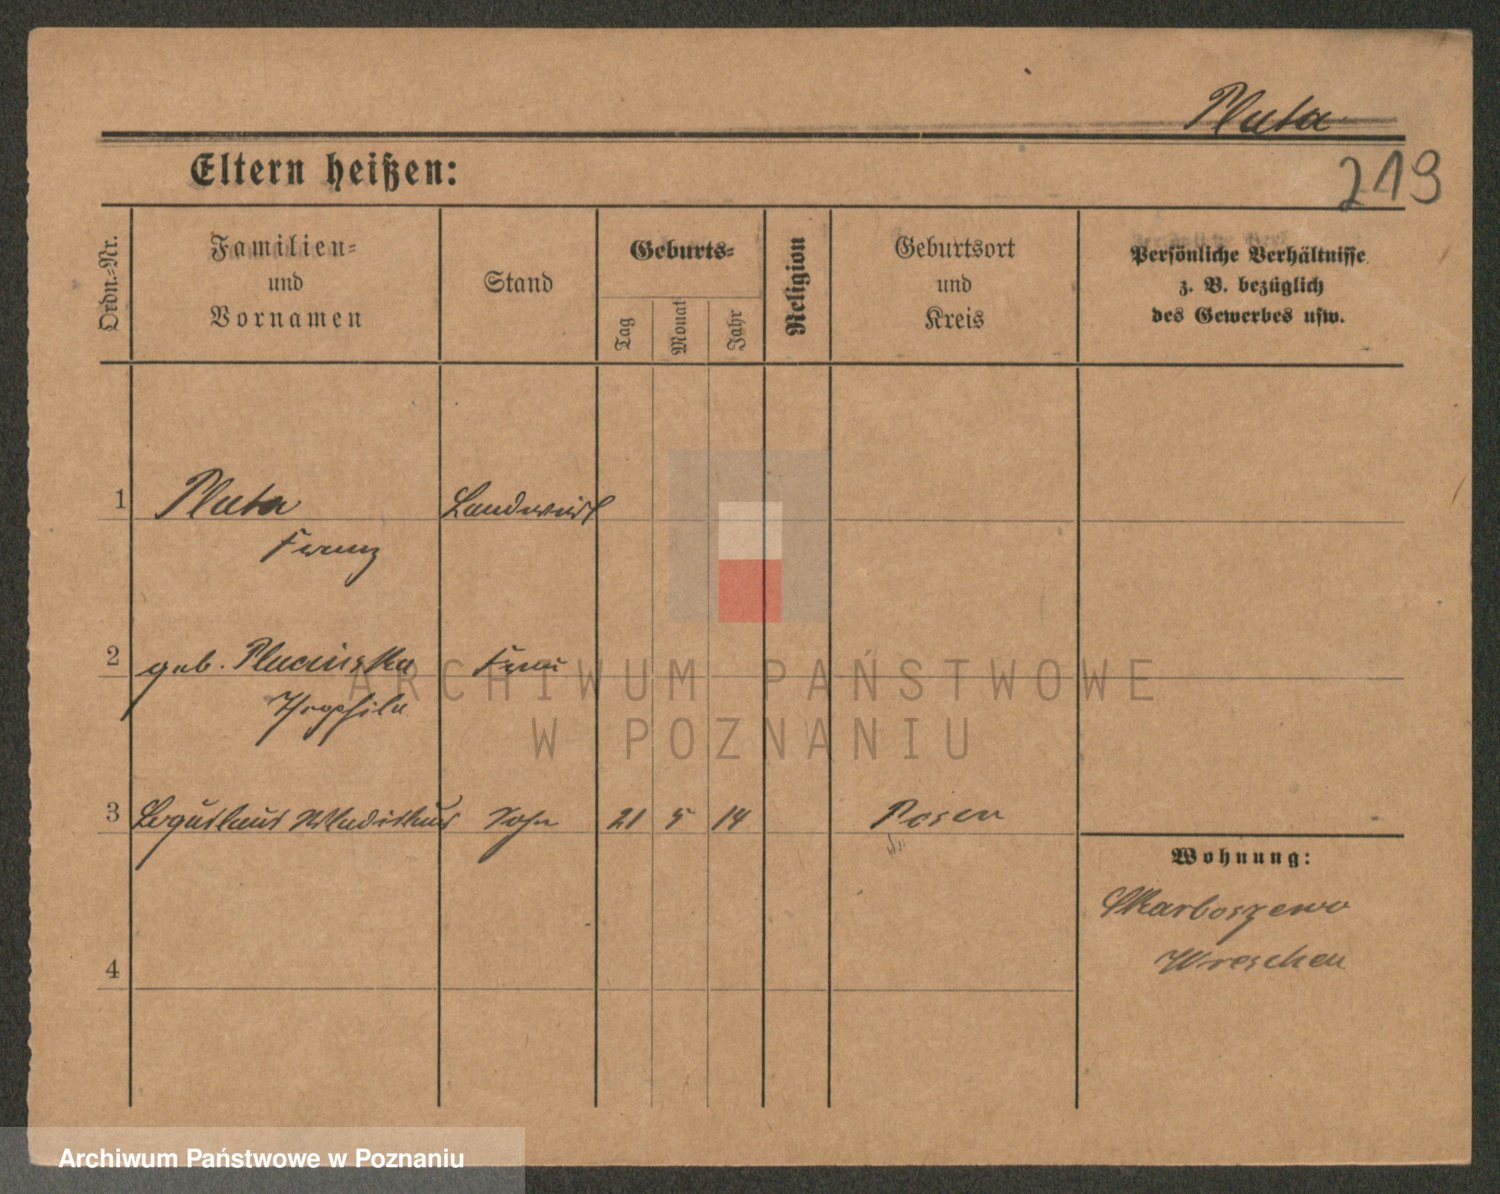 Pluta
219
Eltern heißen:
Ordn.-Nr.
Familien-
und
Vornamen
Stand
Geburts-
Tag
Monat
Jahr
Religion
Geburtsort
und
Kreis
Persönliche Verhältnisse
z. B. bezüglich
des Gewerbes usw.
1 Pluta Landwirt
Franz
2 geb. Plucinska Frau
Theophila
3 Boguslaus Wladislaus Sohn 21 5 14 Posen
Wohnung:
Skarboszewo
Wreschen
4
ARCHIWUM PAŃSTWOWE
W POZNANIU
Archiwum Państwowe w Poznaniu